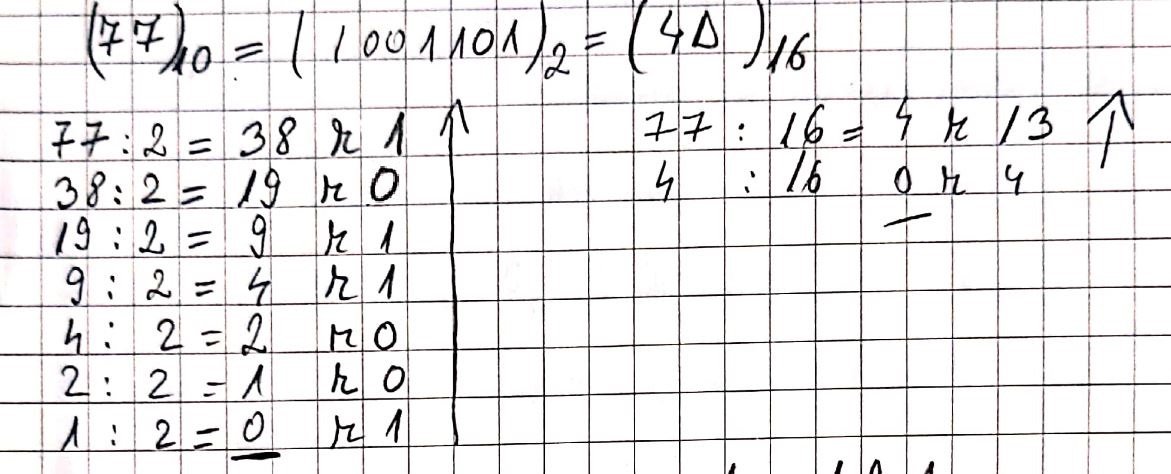 (77)10 = (1001101)2 = (4D)16
77 : 2 = 38 r 1
38 : 2 = 19 r 0
19 : 2 = 9 r 1
9 : 2 = 4 r 1
4 : 2 = 2 r 0
2 : 2 = 1 r 0
1 : 2 = 0 r 1
77 : 16 = 4 r 13
4 : 16 0 r 4